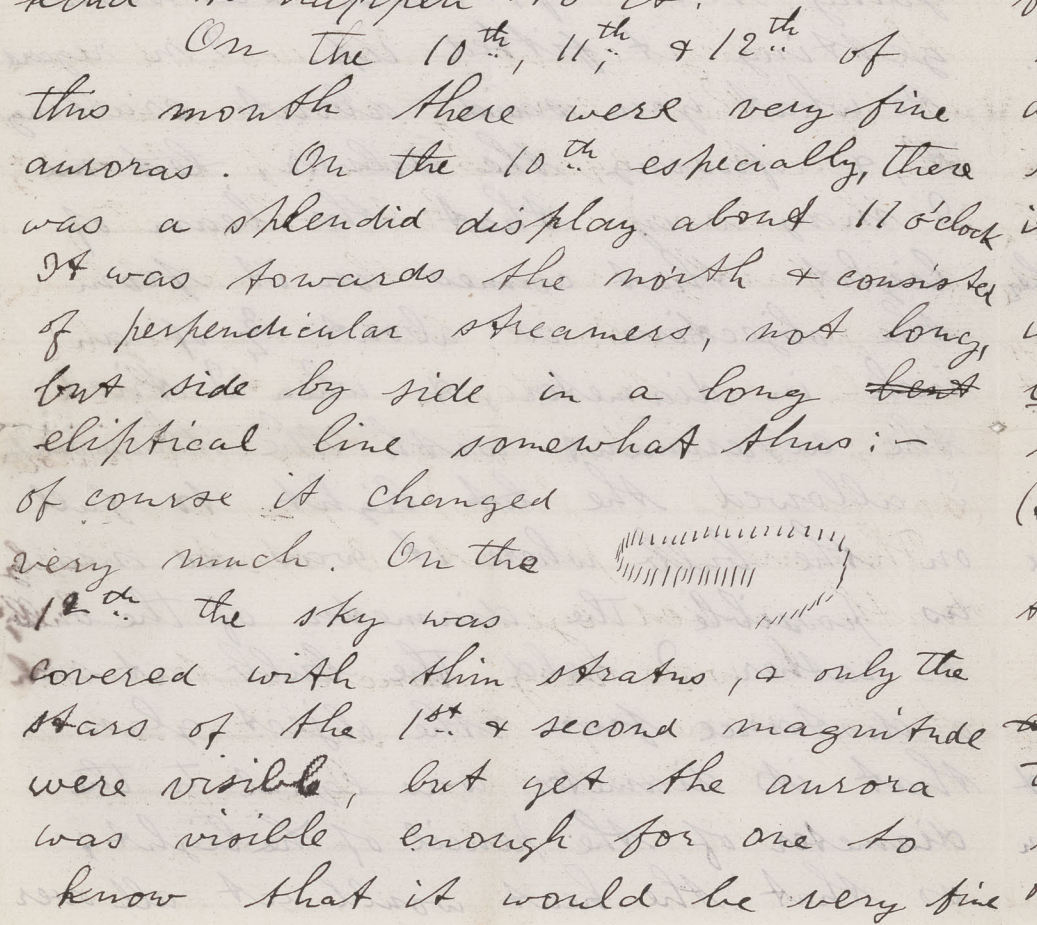 happen to it.
On the 10th, 11th, & 12th of
this month there were very fine
auroras. On the 10th especially, there
was a splendid display about 11 o'clock
It was towards the north & consisted
of perpendicular streamers, not long,
but side by side in a long bent
eliptical line somewhat thus:—
of course it changed
very much. On the
12th the sky was
covered with thin stratus, & only the
stars of the 1st & second magnitude
were visible, but yet the aurora
was visible enough for one to
know that it would be very fine